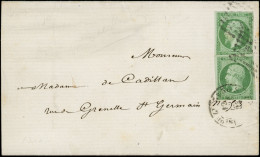 Monsieur
Madame de Cadillan
rue de Grenelle St Germain